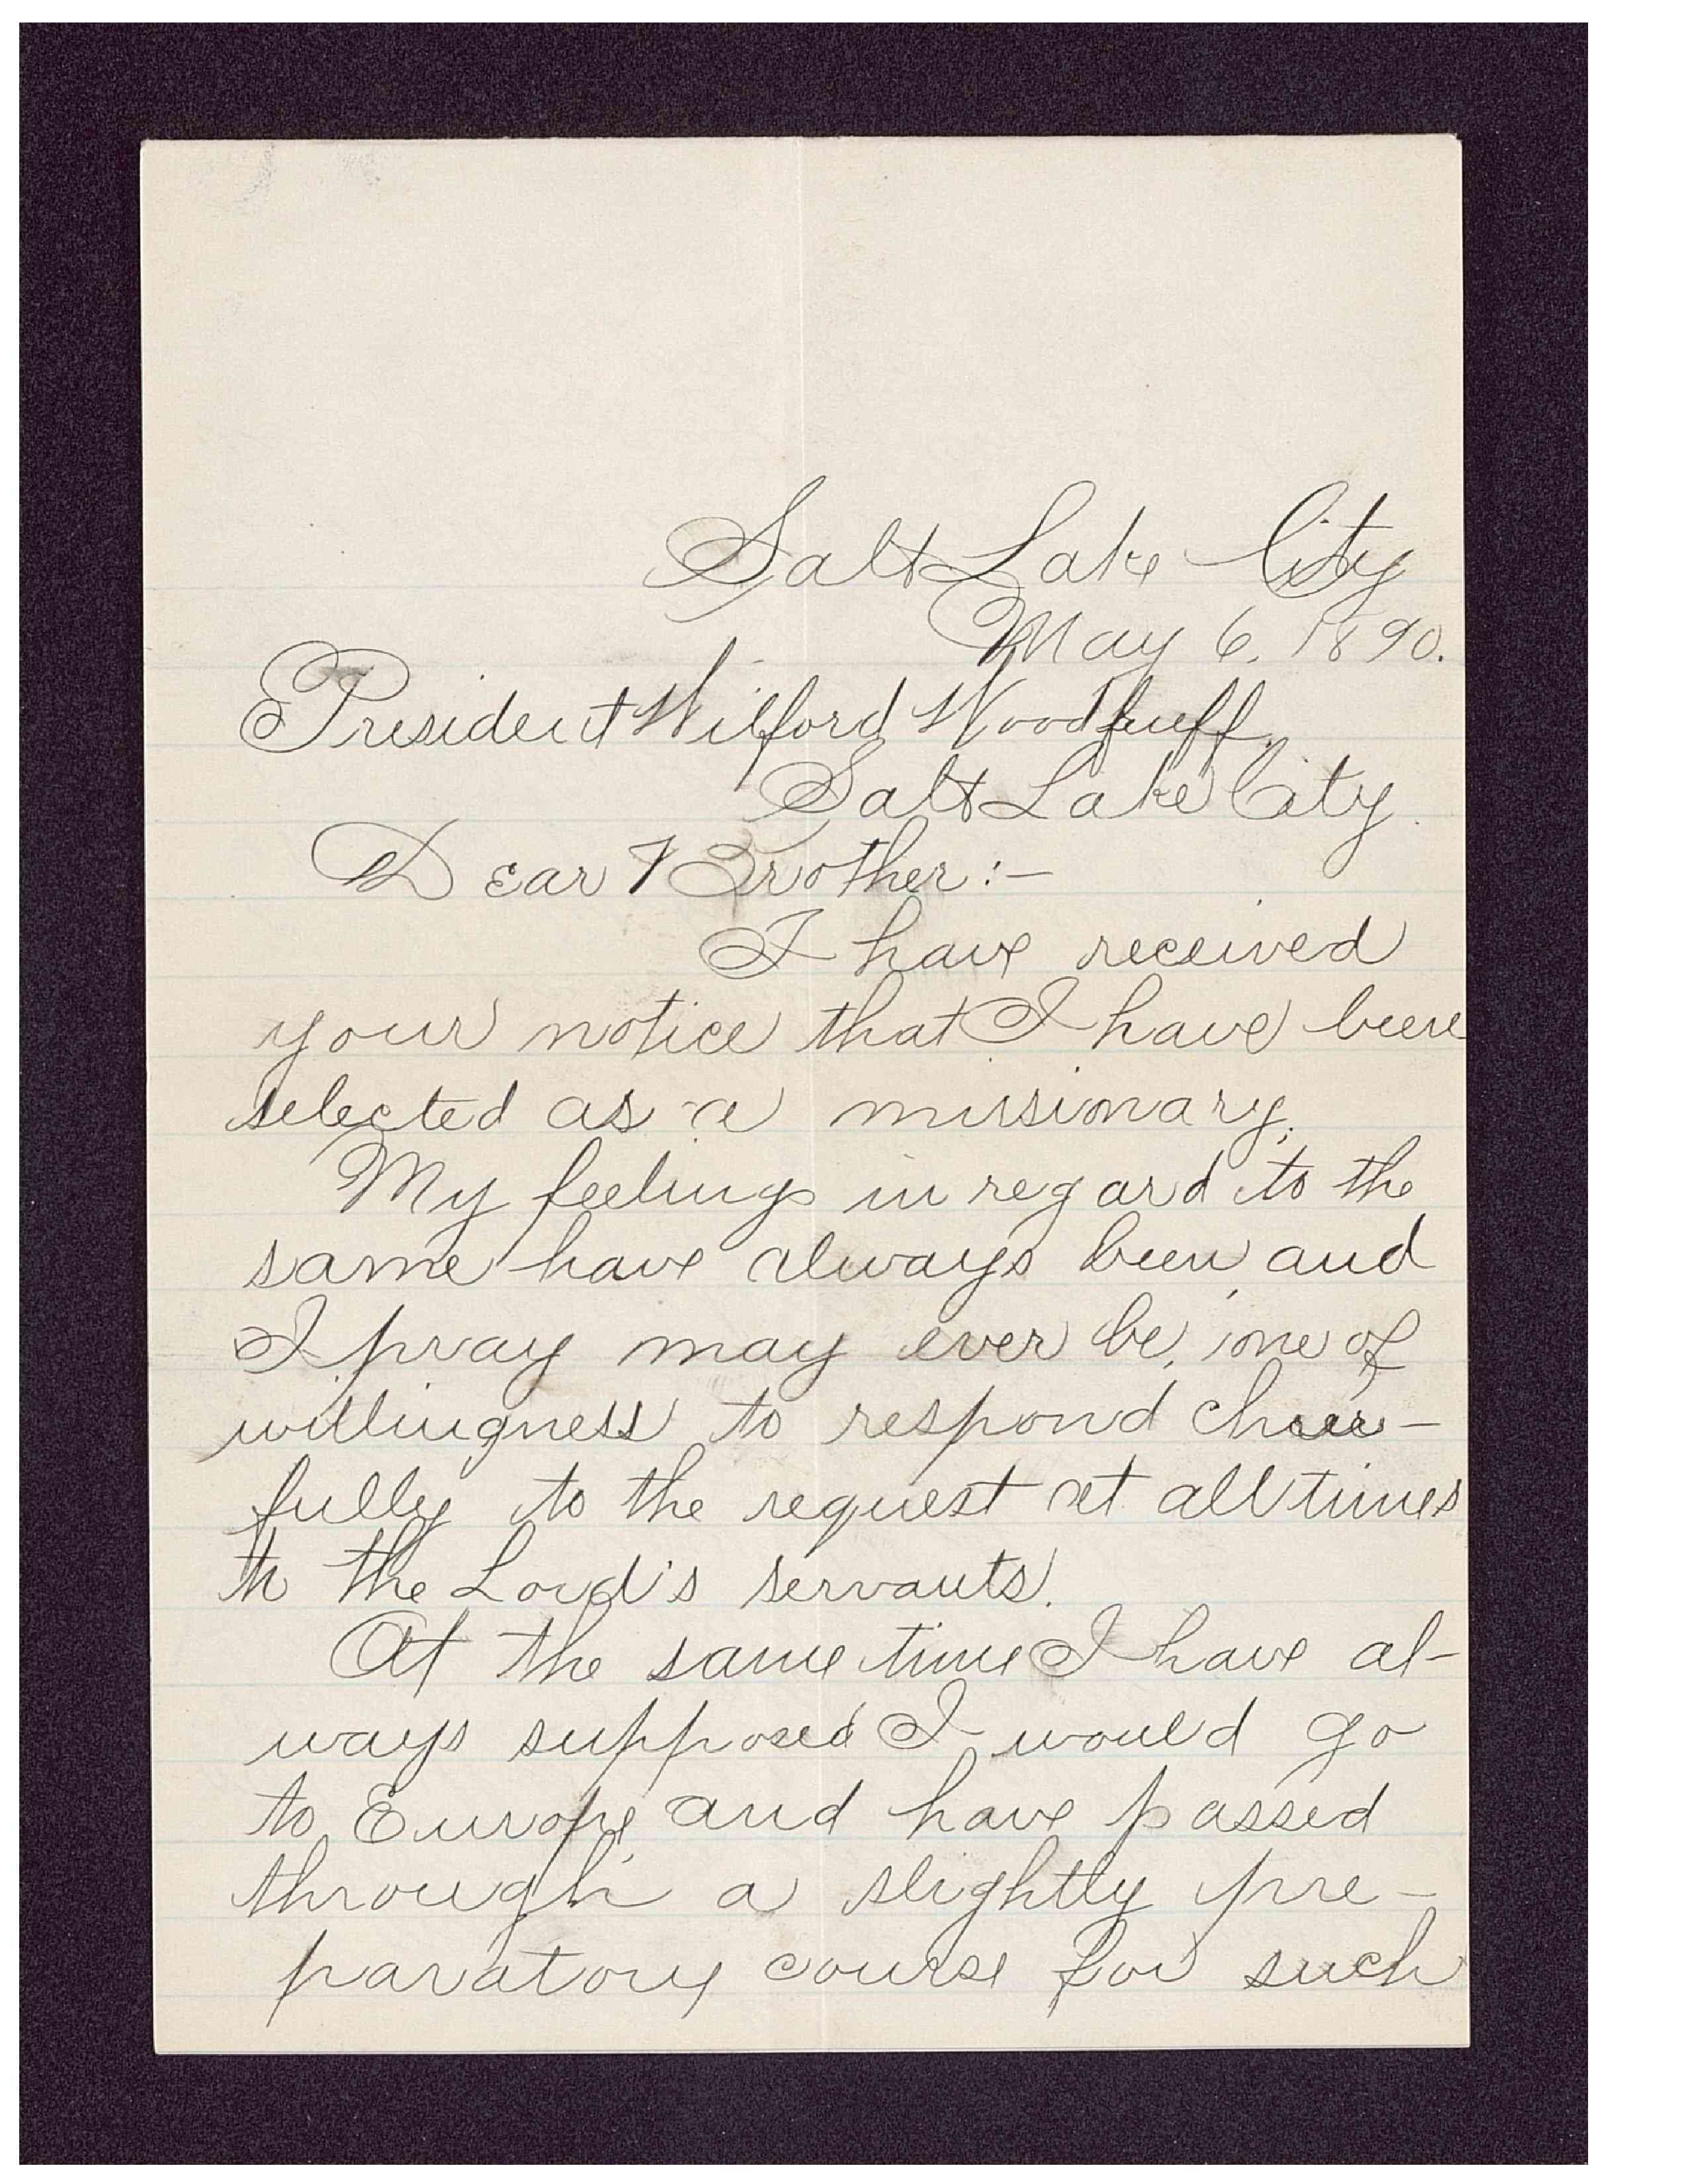 Salt Lake City
May 6, 1890.
President Wilford Woodruff,
Salt Lake City.
Dear Brother:—
I have received
your notice that I have been
selected as a missionary.
My feelings in regard to the
same have always been, and
I pray may ever be, one of
willingness to respond cheer-
fully to the request at all times
to the Lord's servants.
At the same time I have al-
ways supposed I would go
to Europe, and have passed
through a slightly pre-
paratory course for such